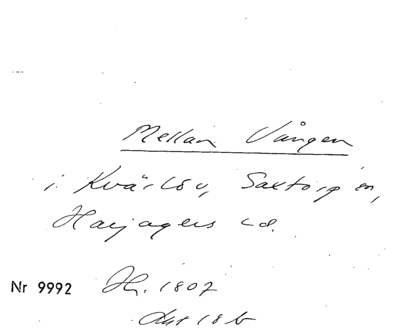 Mellan Vången
i Kvärlöv, Saxtorp sn,
Harjagers hd.
Nr 9992 Hh. 1807
Akt 18 b